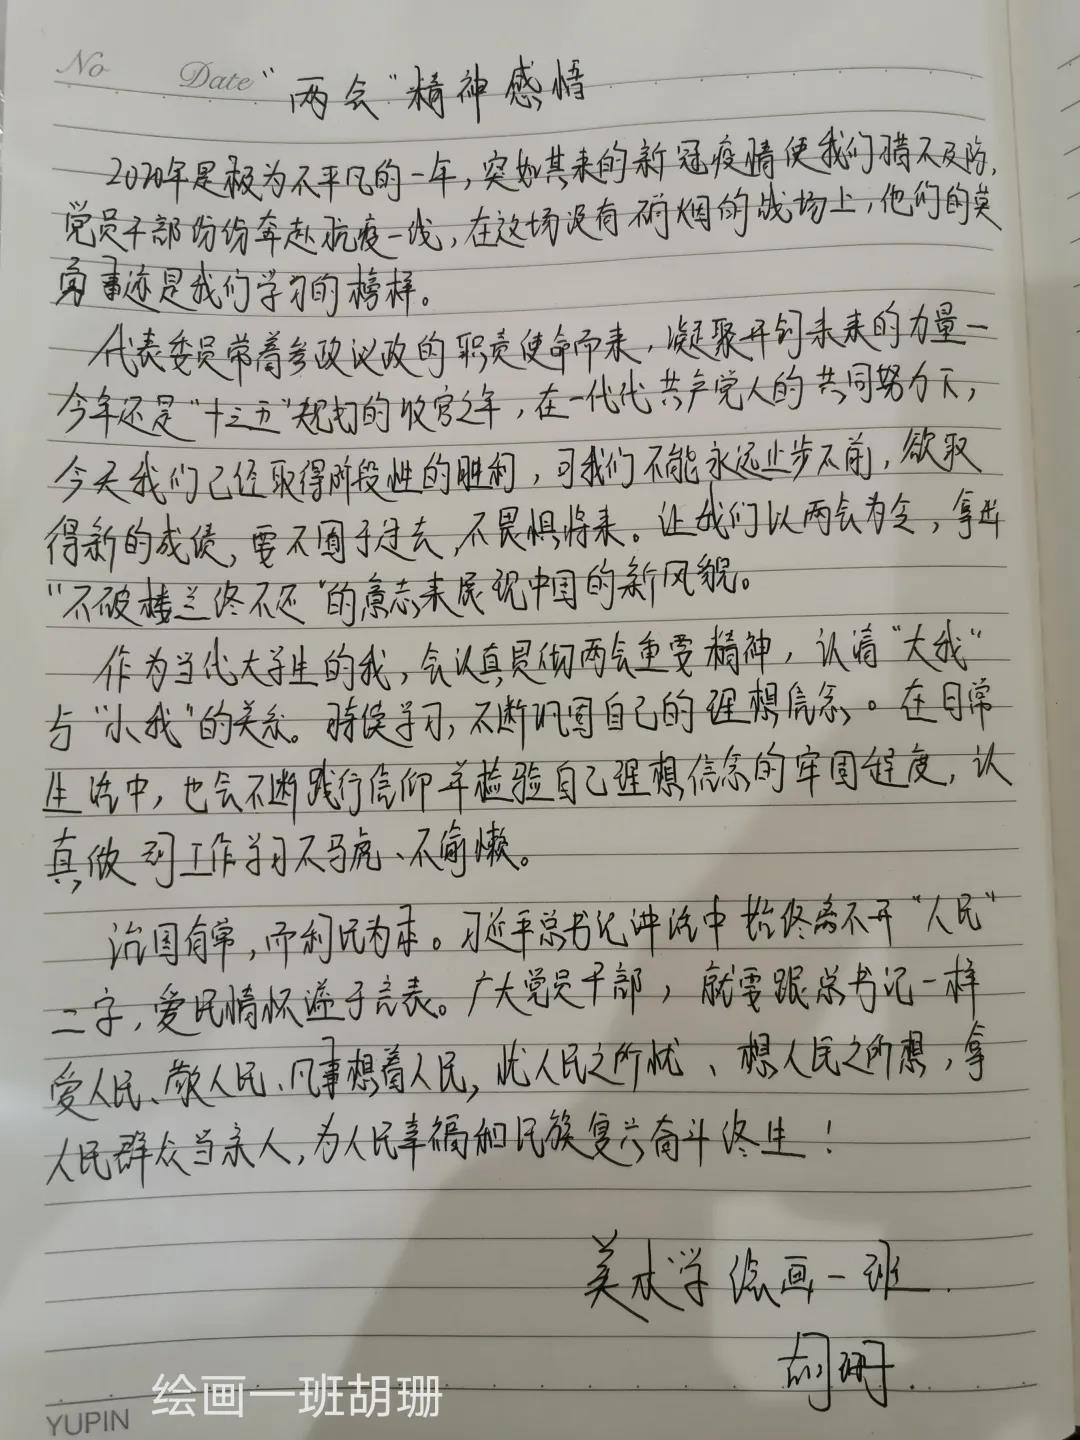 No
Date
"两会"精神感悟
2020年是极为不平凡的一年，突如其来的新冠疫情使我们措不及防，
党员干部纷纷奔赴抗疫一线，在这场没有硝烟的战场上，他们的英
勇事迹是我们学习的榜样。
代表委员带着参政议政的职责使命而来，凝聚开创未来的力量一
今年还是"十三五"规划的收官之年，在一代代共产党人的共同努力下，
今天我们已经取得阶段性的胜利，可我们不能永远止步不前，欲取
得新的成绩，要不囿于过去，不畏惧将来。让我们以两会为令，拿出
"不破楼兰终不还"的意志来展现中国的新风貌。
作为当代大学生的我，会认真贯彻两会重要精神，认清"大我"
与"小我"的关系。持续学习，不断巩固自己的理想信念。在日常
生活中，也会不断践行信仰并检验自己理想信念的牢固程度，认
真做到工作学习不马虎、不偷懒。
治国有常，而利民为本。习近平总书记讲话中始终离不开"人民"
二字，爱民情怀溢于言表。广大党员干部，就要跟总书记一样
爱人民、敬人民、凡事想着人民，忧人民之所忧、想人民之所想，拿
人民群众当亲人，为人民幸福和民族复兴奋斗终生！
美术学绘画一班.
胡珊.
绘画一班胡珊
YUPIN